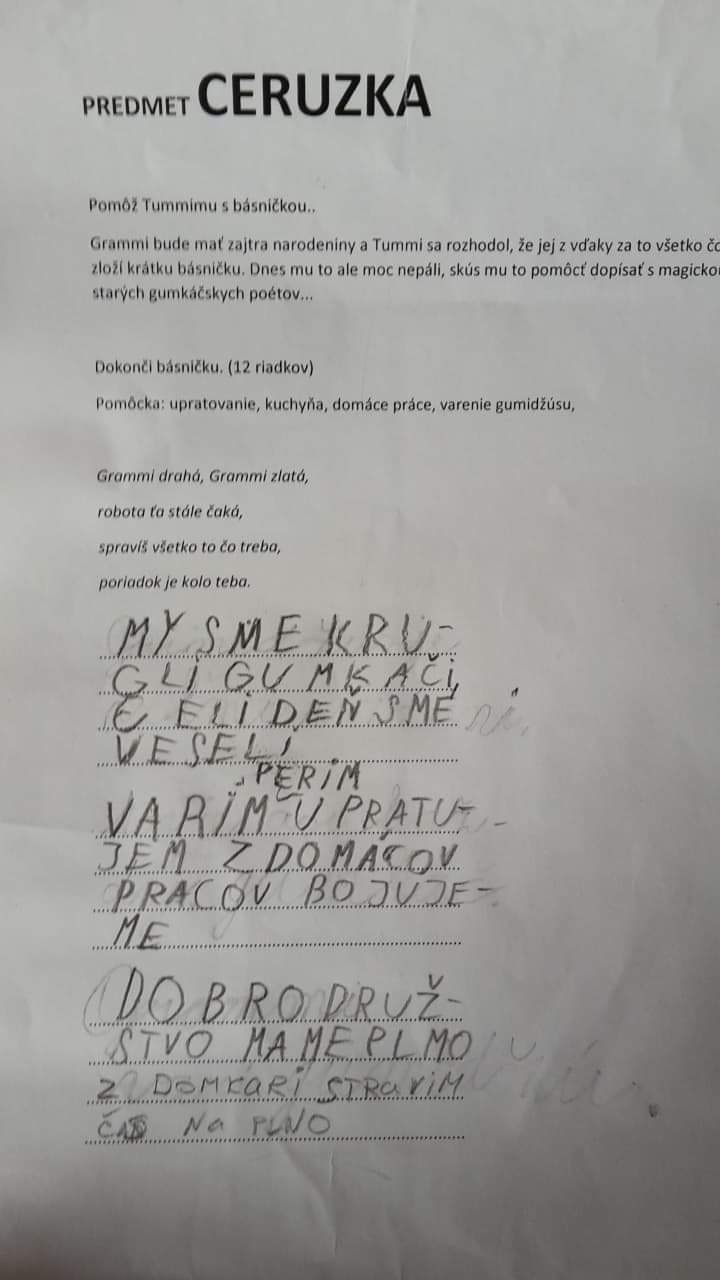 PREDMET CERUZKA
Pomôž Tummimu s básničkou..
Grammi bude mať zajtra narodeniny a Tummi sa rozhodol, že jej z vďaky za to všetko čo
zloží krátku básničku. Dnes mu to ale moc nepáli, skús mu to pomôcť dopísať s magickou
starých gumkáčskych poétov...
Dokonči básničku. (12 riadkov)
Pomôcka: upratovanie, kuchyňa, domáce práce, varenie gumidžúsu,
Grammi drahá, Grammi zlatá,
robota ťa stále čaká,
spravíš všetko to čo treba,
poriadok je kolo teba.
MY SME KRU-
GLI GUMKAČI,
C ELI DEŇ SME
VESELI
PERIM
VARIM UPRATU-
JEM Z DOMACOV
PRACOV BOJUJE-
ME
DOBRODRUŽ-
STVO MAME PLMO
Z DOMKARI STRAVIM
ČAS Na PLNO